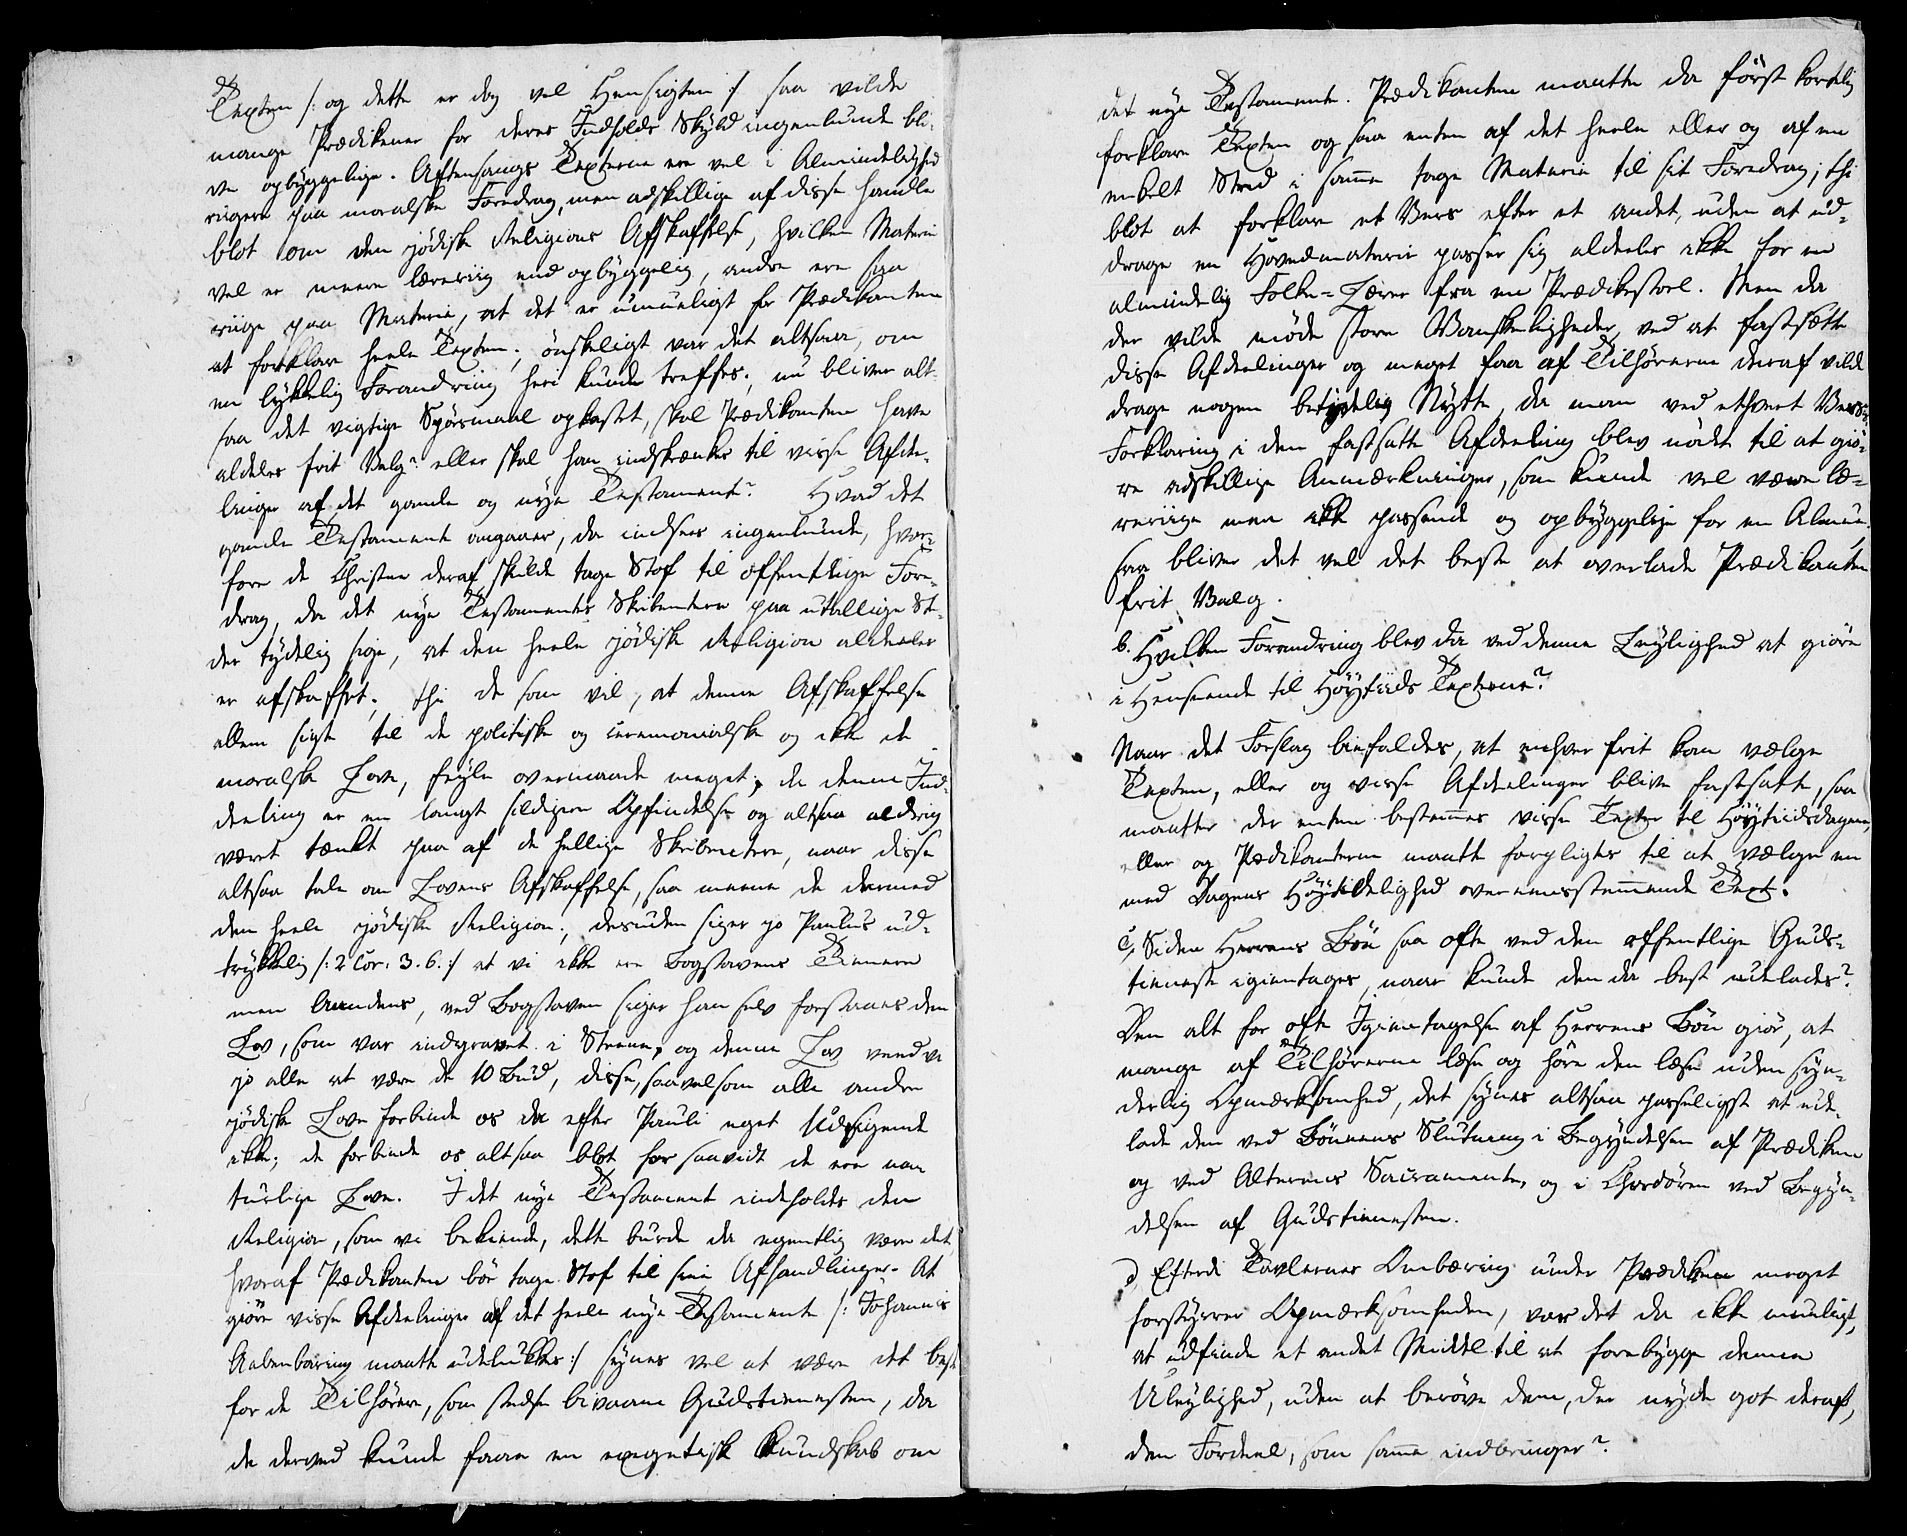 Texten /: og dette er dog vel Hensigten :/ saa vilde
mange Prædikener for deres Indholds Skyld ingenlunde bli-
ve opbyggelige. Aftensangs Texterne ere vel i Almindelighed
rigere paa moralske Foredrag, men adskillige af disse handle
blot om den jödiske Religions Afskaffelse, hvilken Materie
vel er meere læreriig end opbyggelig, andre ere saa
riige paa Materie, at det er umueligt for Prædikanten
at forklare heele Texten; önskeligt var det altsaa, om
en lykkelig Forandring heri kunde treffes; nu bliver alt-
saa det vigtige Spörsmaal opkastet, skal Prædikanten have
aldeles frit Valg? eller skal han indskrænkes til visse Afde-
linger af det gamle og nye Testament? Hvad det
gamle Testament angaaer, da indsees ingenlunde, hvor-
fore de Christne deraf skulde tage Stof til offentlige Fore-
drag, da det nye Testamentes Skribentere paa utallige Ste-
der tydelig sige, at den heele jödiske Religion aldeeles
er afskaffet; thi de som vil, at denne Afskaffelse
allene sigte til de politiske og ceremonialske og ikke de
moralske Love, feyle overmaade meget, da denne Ind-
deeling er en langt sildigere Opfindelse og altsaa aldrig
været tænkt paa af de hellige Skribentere, naar disse
altsaa tale om Lovens Afskaffelse, saa meene de dermed
den heele jödiske Religion; desuden siger jo Paulus ud-
trykkelig /: 2 Cor: 3. 6. :/ at vi ikke ere Bogstavens Tienere
men Aandens, ved Bogstaven siger han selv forstaaes den
Lov, som var indgravet i Steene, og denne Lov veed vi
jo alle at være de 10 Bud, disse, saavelsom alle andre
jödiske Love forbinde os da efter Pauli eget Udsigende
ikke; de forbinde os altsaa blot for saavidt de ere na-
turlige Love. I det nye Testament indeholdes den
Religion, som vi bekiende, dette burde da egentlig være det,
hvoraf Prædikanten bör tage Stof til sine Afhandlinger. At
giöre visse Afdelinger af det heele nye Testamente /: Johannis
Aabenbaring maatte udelukkes :/ synes vel at være det best
for de Tilhörere, som stedse bivaane Gudstienesten, da
de derved kunde faae en exegetisk Kundskab om
det nye Testamente. Prædikanten maatte da först kortelig
forklare Texten og saa enten af det heele eller og af en
enkelt Sted i samme tage Materie til sit Foredrag; thi
blot at forklare et Vers efter et andet, uden at ud-
drage en Hovedmaterie passer sig aldeeles ikke for en
almindelig Folke-Lærer fra en Prædikestoel. Men da
der vilde möde store Vanskeligheder ved at fastsætte
disse Afdeelinger og meget faa af Tilhörerne deraf vilde
drage nogen betydelig Nytte, da man ved ethvert Verses
Forklaring i den fastsatte Afdeeling blev nödt til at giö-
re adskillige Anmærkninger, som kunde vel være læ-
reriige men ikke passende og opbyggelige for en Almue,
saa bliver det vel det beste at overlade Prædikanten
frit Valg.
b. Hvilken Forandring blev da ved denne Leylighed at giöre
i Henseende til Höytiids Texterne?
Naar det Forslag biefaldes, at enhver frit kan vælge
Texten, eller og visse Afdeelinger blive fastsatte, saa
maatte der enten bestemmes visse Texter til Höytiidsdagene,
eller og Prædikanterne maatte forpligtes til at vælge en
med Dagens Höytidelighed overeensstemmende Text.
c, Siden Herrens Bön saa ofte ved den offentlige Guds-
tieneste igientages, naar kunde den da best udelades?
Den alt for ofte Igientagelse af Herrens Bön giör, at
mange af Tilhörerne læse og höre den læse uden syn-
derlig Opmærksomhed, det synes altsaa passeligst at ude-
lade den ved Bönnens Slutning i Begyndelsen af Prædiken
og ved Alterens Sacramente, og i Chordören ved Begyn-
delsen af Gudstienesten.
d, Efterdi Tavlernes Ombæring under Prædiken meget
forstyrrer Opmærksomheden, var det da ikke mueligt,
at udfinde et andet Middel til at forebygge denne
Uleylighed, uden at beröve dem, der nyde got deraf,
den Fordeel, som samme indbringer?